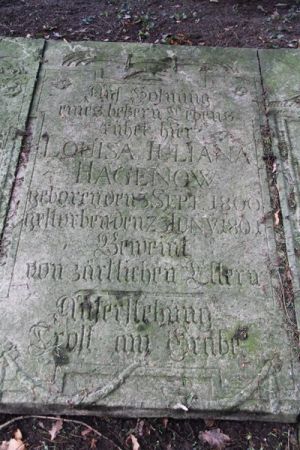 Auf Hofnung
eines beßern Lebens
ruhet hier
LOUISA IULIANA
HAGENOW
geboren den 3 SEPT. 1800
gestorben den 7 IUNY 1801
Beweint
von zärtlichen Eltern
Auferstehung
Trost am Grabe